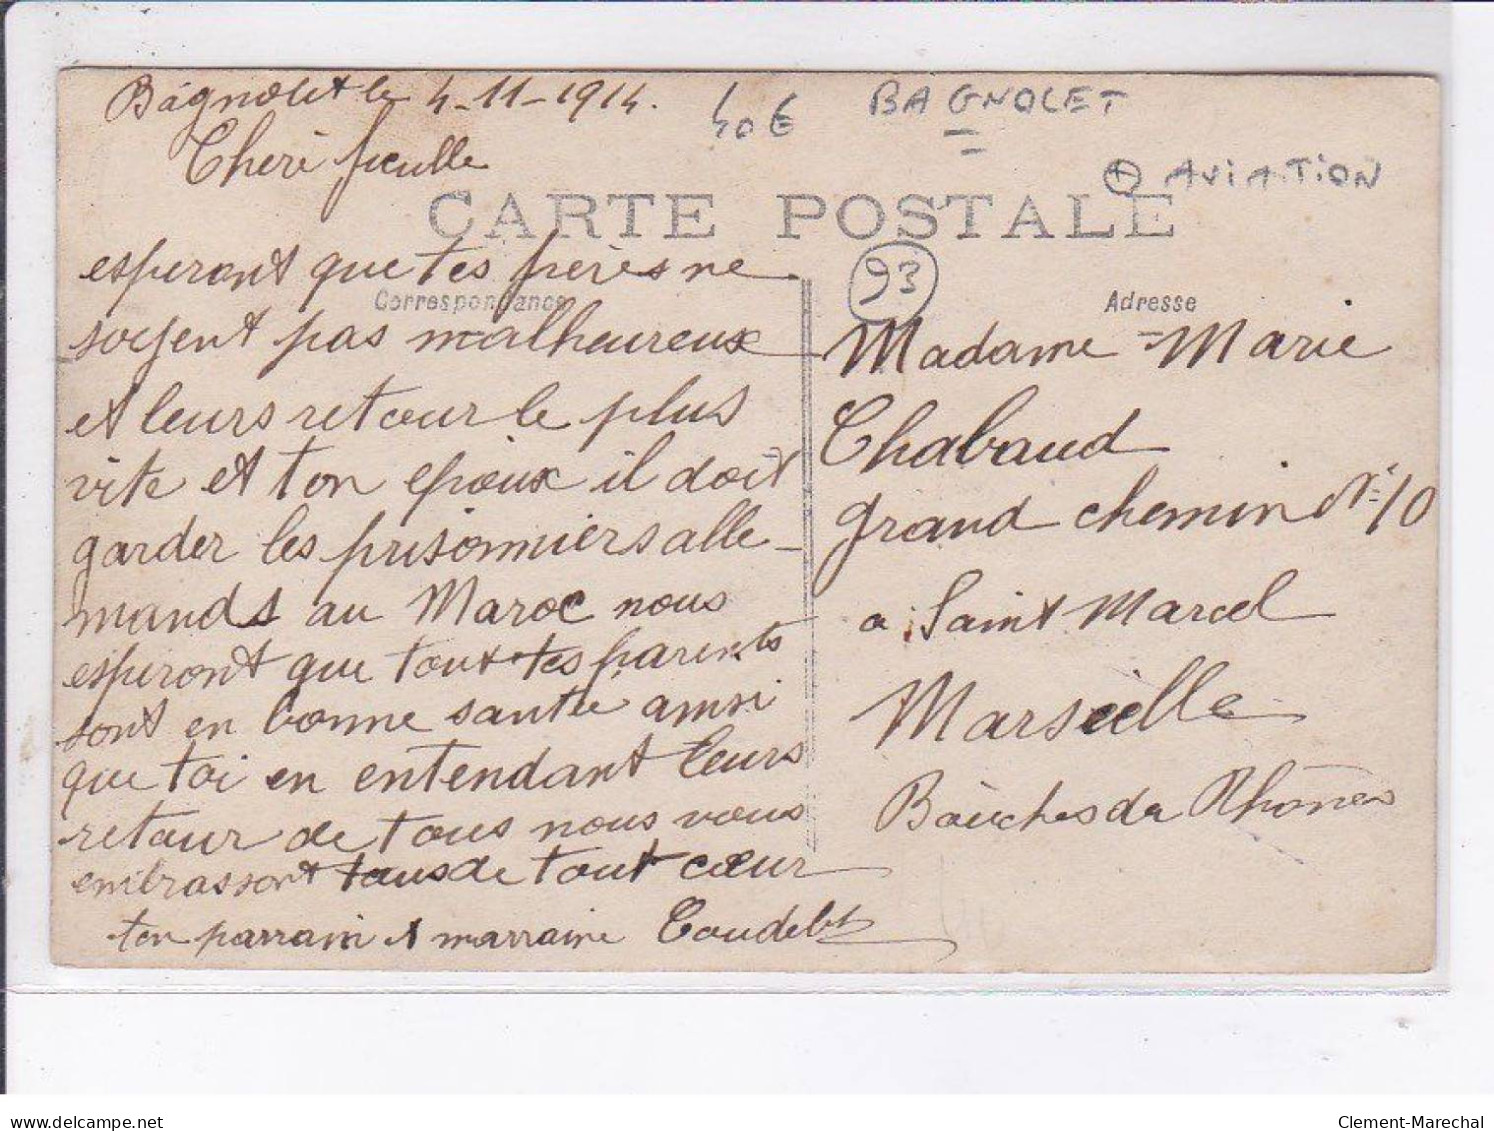 Bagnolet le 4-11-1914.
40€ BAGNOLET
Cheri fieulle
+ AVIATION
CARTE POSTALE
93
Correspondance
Adresse
esperont que tes freres ne
soyent pas malheureux
et leurs retour le plus
vite et ton epoux il doit
garder les prisonniers alle-
mands au Maroc nous
esperont que tout tes parents
sont en bonne santé ainsi
que toi en entendant leurs
retour de tous nous vous
embrassont tous de tout cœur
ton parrain et marraine Coudelet
Madame Marie
Chabaud
grand chemin N° 10
a Saint Marcel
Marseille
Bouches du Rhônes
delcampe.net
Clement-Marechal